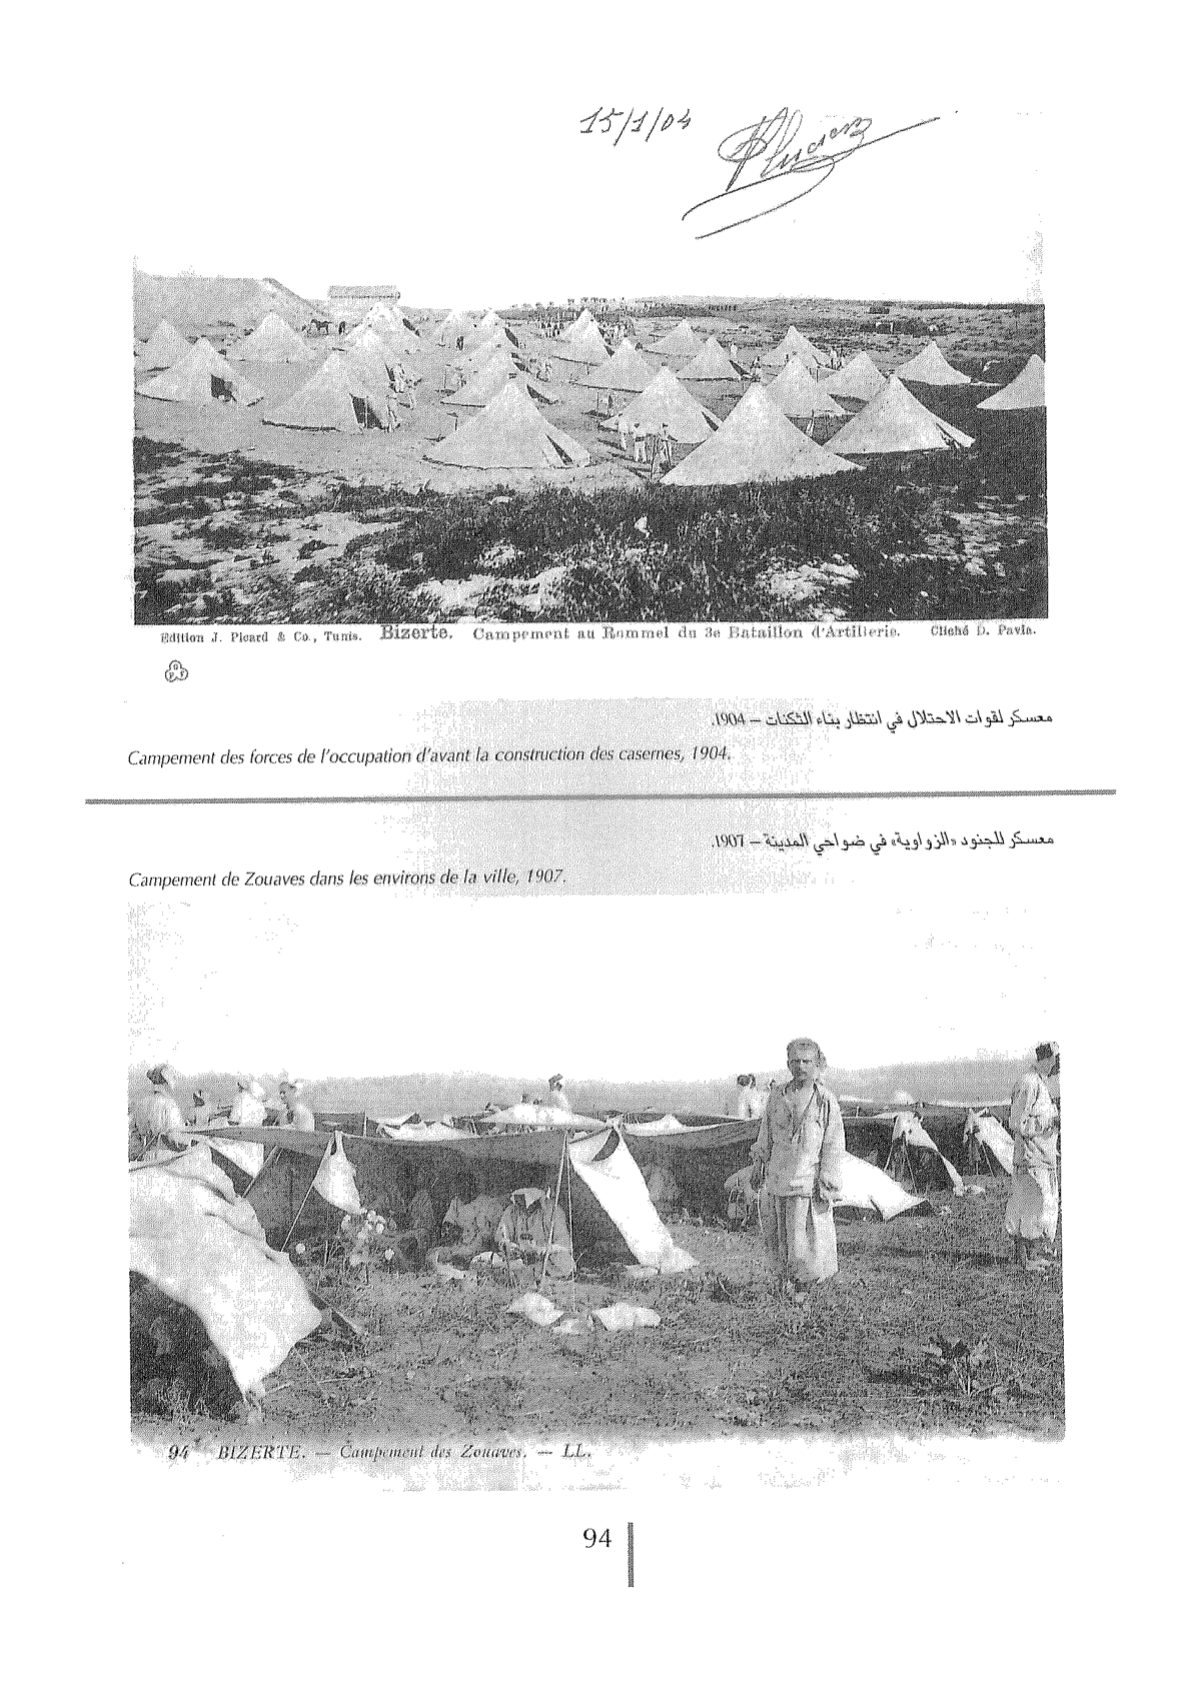 15/1/04
Edition J. Picard & Co., Tunis. Bizerte. Campement au Rommel du 3e Bataillon d'Artillerie. Cliché D. Pavia.
معسكر لقوات الاحتلال في انتظار بناء الثكنات – 1904.
Campement des forces de l'occupation d'avant la construction des casernes, 1904.
معسكر للجنود «الزواوية» في ضواحي المدينة – 1907.
Campement de Zouaves dans les environs de la ville, 1907.
94 BIZERTE. — Campement des Zouaves. — LL.
94